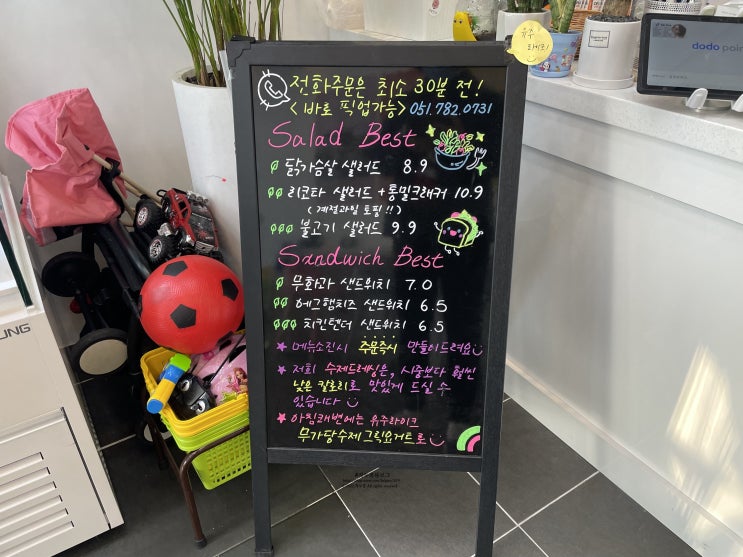 유주
라이크!
dodo poin
전화주문은 최소 30분 전!
<바로 픽업가능> 051.782.0731
Salad Best
닭가슴살 샐러드 8.9
리코타 샐러드 + 통밀크래커 10.9
(계절과일 토핑!!)
불고기 샐러드 9.9
Sandwich Best
무화과 샌드위치 7.0
에그햄치즈 샌드위치 6.5
치킨텐더 샌드위치 6.5
★ 메뉴소진시 주문즉시 만들어드려요
★ 저희 수제드레싱은, 시중보다 훨씬
낮은 칼로리로 맛있게 드실 수
있습니다
★ 아침해변에는 유주라이크
무가당수제그릭요거트로
SUNG